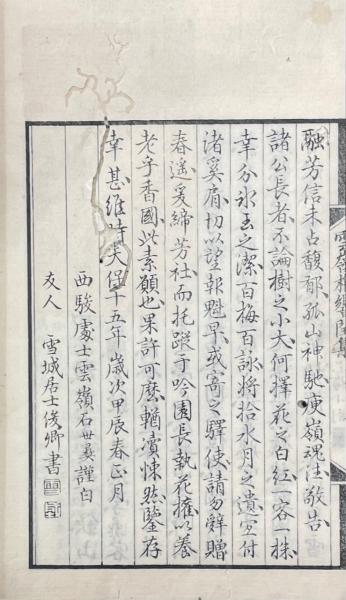 融芳信未占馥郁孤山神馳庾嶺魂注敬告
諸公長者不論樹之小大何擇花之白紅一客一株
幸分氷玉之潔百梅百詠將拾水月之遺空付
渚奚肩切以望報魁早或寄之驛使請勿辭贈
春遥爰締芳社而托蹤于吟園長執花權以養
老乎香國此素願也果許可麽輶瀆悚愁鑒存
幸甚維時天保十五年歳次甲辰春正月
西駿處士雲嶺石世彜謹白
友人 雪城居士俊卿書